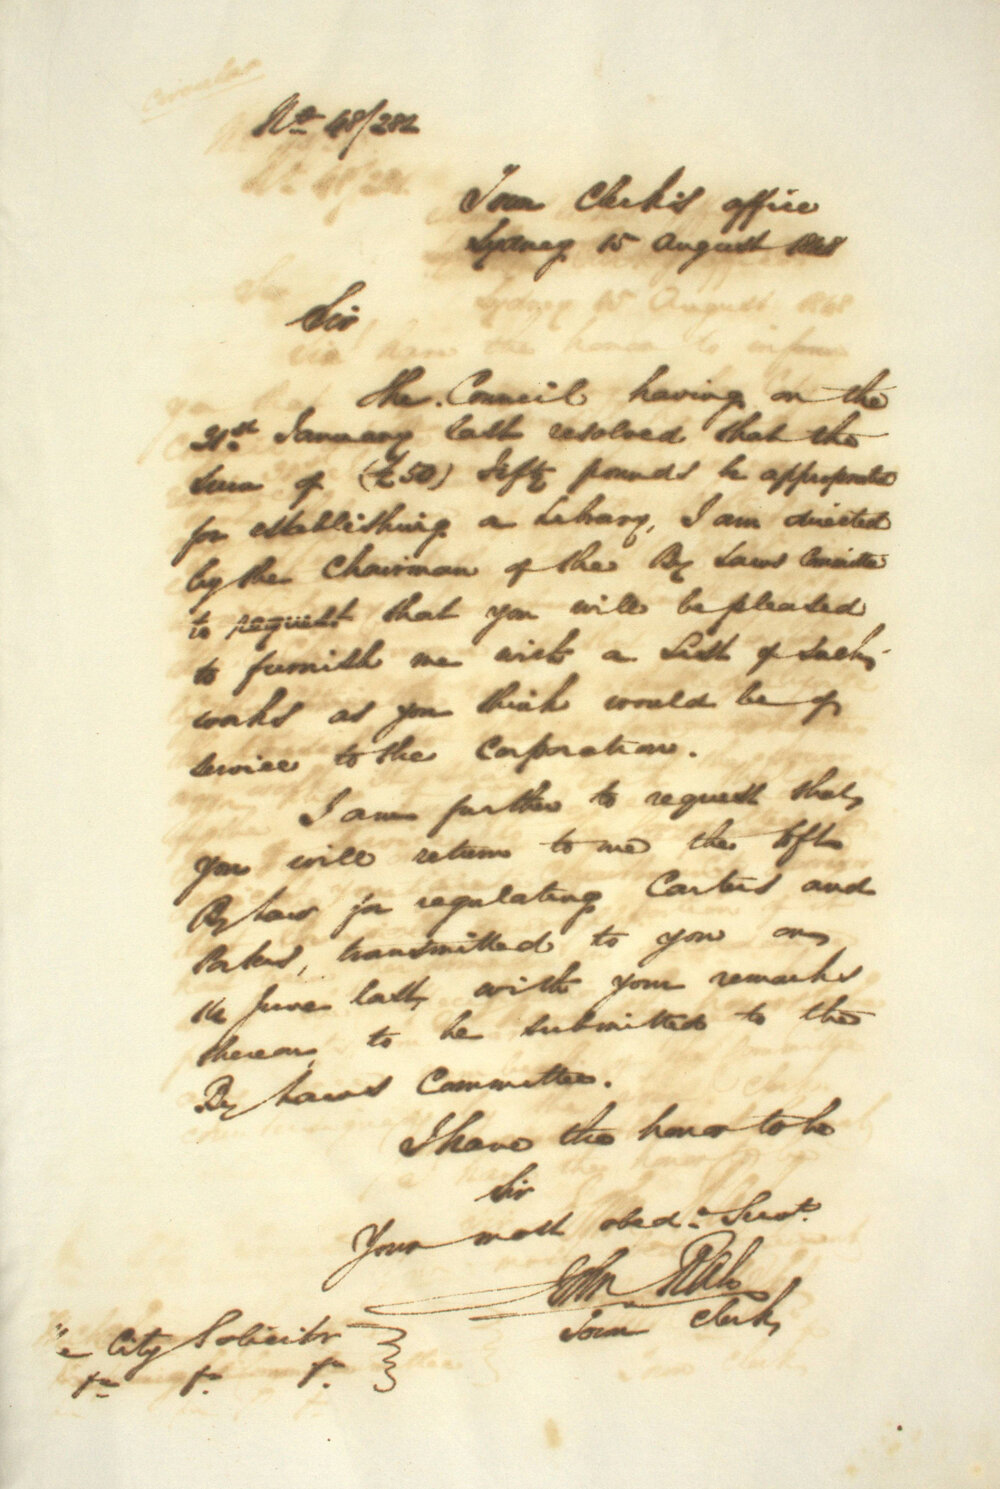 Circular
No. 48/282
Town Clerk's office
Sydney 15 August 1848
Sir
The Council having on the
31st January last resolved that the
sum of (£50) Fifty pounds be appropriated
for establishing a Library, I am directed
by the Chairman of the By Laws Committee
to request that you will be pleased
to furnish me with a List of such
works as you think would be of
service to the Corporation.
I am further to request that
you will return to me the dft
By law for regulating Carters and
Porters, transmitted to you on
14 June last, with your remarks
thereon, to be submitted to the
By Laws Committee.
I have the honor to be
Sir
Your most obed.t Servt.
John
Town Clerk
City Solicitor